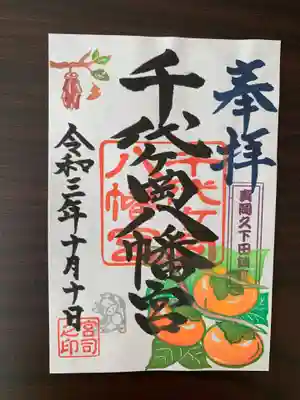 奉拝
真岡久下田鎮
千代ヶ岡八幡宮
千代ヶ岡
八幡宮
令和三年十月十日
宮司
之印